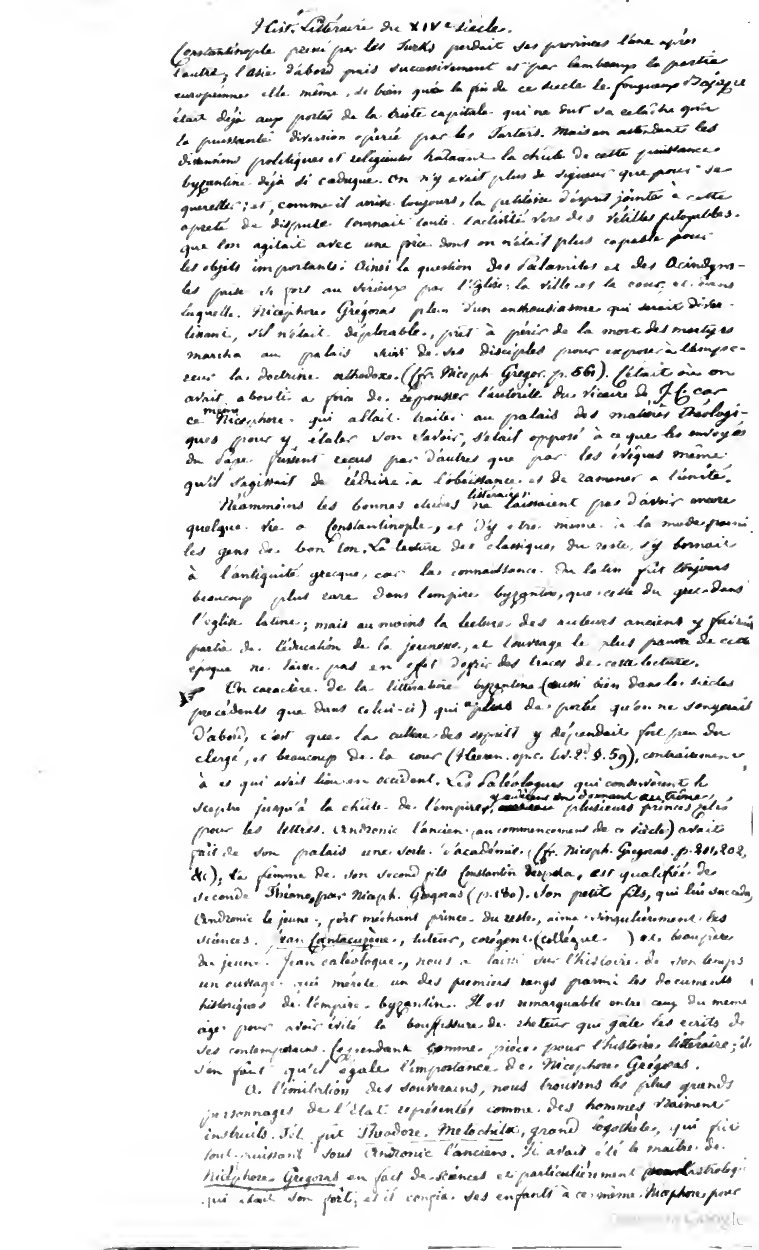 Hist. Littéraire du XIVe siècle.
Constantinople pressé par les Turks perdait ses provinces l'une après
l'autre; l'Asie d'abord puis successivement et par lambeaux la partie
européenne elle même, si bien qu'à la fin de ce siècle le fougueux Bajazet
était déjà aux portes de la triste capitale qui ne dut sa relâche qu'à
la puissante diversion opérée par les Tartares. Mais en attendant les
dissensions politiques et religieuses hâtaient la chûte de cette puissance
byzantine déjà si caduque. On n'y avait plus de vigueur que pour se
quereller; et, comme il arrive toujours, la petitesse d'esprit jointe à cette
apreté de dispute tournait toute l'activité vers des vétilles pitoyables
que l'on agitait avec une dont on n'était plus capable pour
les objets importants: Ainsi la question des Palamites et des Acindyns-
tes prise si fort au sérieux par l'Eglise, la ville et la cour, et dans
laquelle Nicephore Grégoras plein d'un enthousiasme qui serait diver-
tissant, s'il n'était déplorable, prêt à périr de la mort des martyrs
marcha au palais suivi de ses disciples pour exposer à l'empe-
reur la doctrine orthodoxe. (fr. Niceph. Gregor. p. 561). C'était où on
avait abouti à force de repousser l'autorité du vicaire de J. C. car
ce même Nicephore qui allait traiter au palais des matières théologi-
ques pour y étaler son savoir, s'était opposé à ce que les envoyés
du Pape fussent reçus par d'autres que par les évêques même
qu'il s'agissait de réduire à l'obéissance et de ramener à l'unité.
Néammoins les bonnes études littéraires ne laissaient pas d'avoir encore
quelque vie à Constantinople, et d'y être même à la mode parmi
les gens de bon ton. La lecture des classiques, du reste, s'y bornait
à l'antiquité grecque, car la connaissance du latin fût toujours
beaucoup plus rare dans l'empire byzantin, que celle du grec dans
l'église latine; mais au moins la lecture des auteurs anciens y faisait
partie de l'éducation de la jeunesse, et l'ouvrage le plus pauvre de cette
époque ne laisse pas en effet d'offrir des traces de cette lecture.
Un caractère de la littérature byzantine (aussi bien dans les siècles
précédents que dans celui-ci) qui a plus de portée qu'on ne songerait
d'abord, c'est que la culture des esprits y dépendait fort peu du
clergé, et beaucoup de la cour (Heeren. opc. liv. 2. §. 59), contrairement
à ce qui avait lieu en occident. Les Paléologues qui conservèrent le
sceptre jusqu'à la chûte de l'empire, plusieurs princes zélés
pour les lettres. Andronic l'ancien (au commencement de ce siècle) avait
fait de son palais une sorte d'académie. (fr. Niceph. Gregoras. p. 201, 202,
&c); La femme de son second fils Constantin despota, est qualifiée de
seconde Théano, par Niceph. Gregoras (p. 180). Son petit fils, qui lui succeda,
Andronic le jeune, fort méchant prince du reste, aima singulièrement les
sciences. Jean Cantacuzène, tuteur, corégent (collègue ) et beaupère
du jeune Jean Paléologue, nous a laissé sur l'histoire de son temps
un ouvrage qui mérite un des premiers rangs parmi les documents
historiques de l'empire byzantin. Il est remarquable entre ceux du même
âge pour avoir évité la bouffissure de rhéteur qui gâte les écrits de
ses contemporains. Cependant comme pièce pour l'histoire littéraire, il
s'en faut qu'il égale l'importance de Nicephore Grégoras.
A l'imitation des souverains, nous trouvons les plus grands
personnages de l'état représentés comme des hommes vraiment
instruits. Tel fut Théodore Metochita, grand logothète, qui fut
tout puissant sous Andronic l'ancien. Il avait été le maître de
Nicephore Gregoras en fait de sciences et particulièrement astrologi
qui était son fort; et il confia ses enfants à ce même Nicephore pour